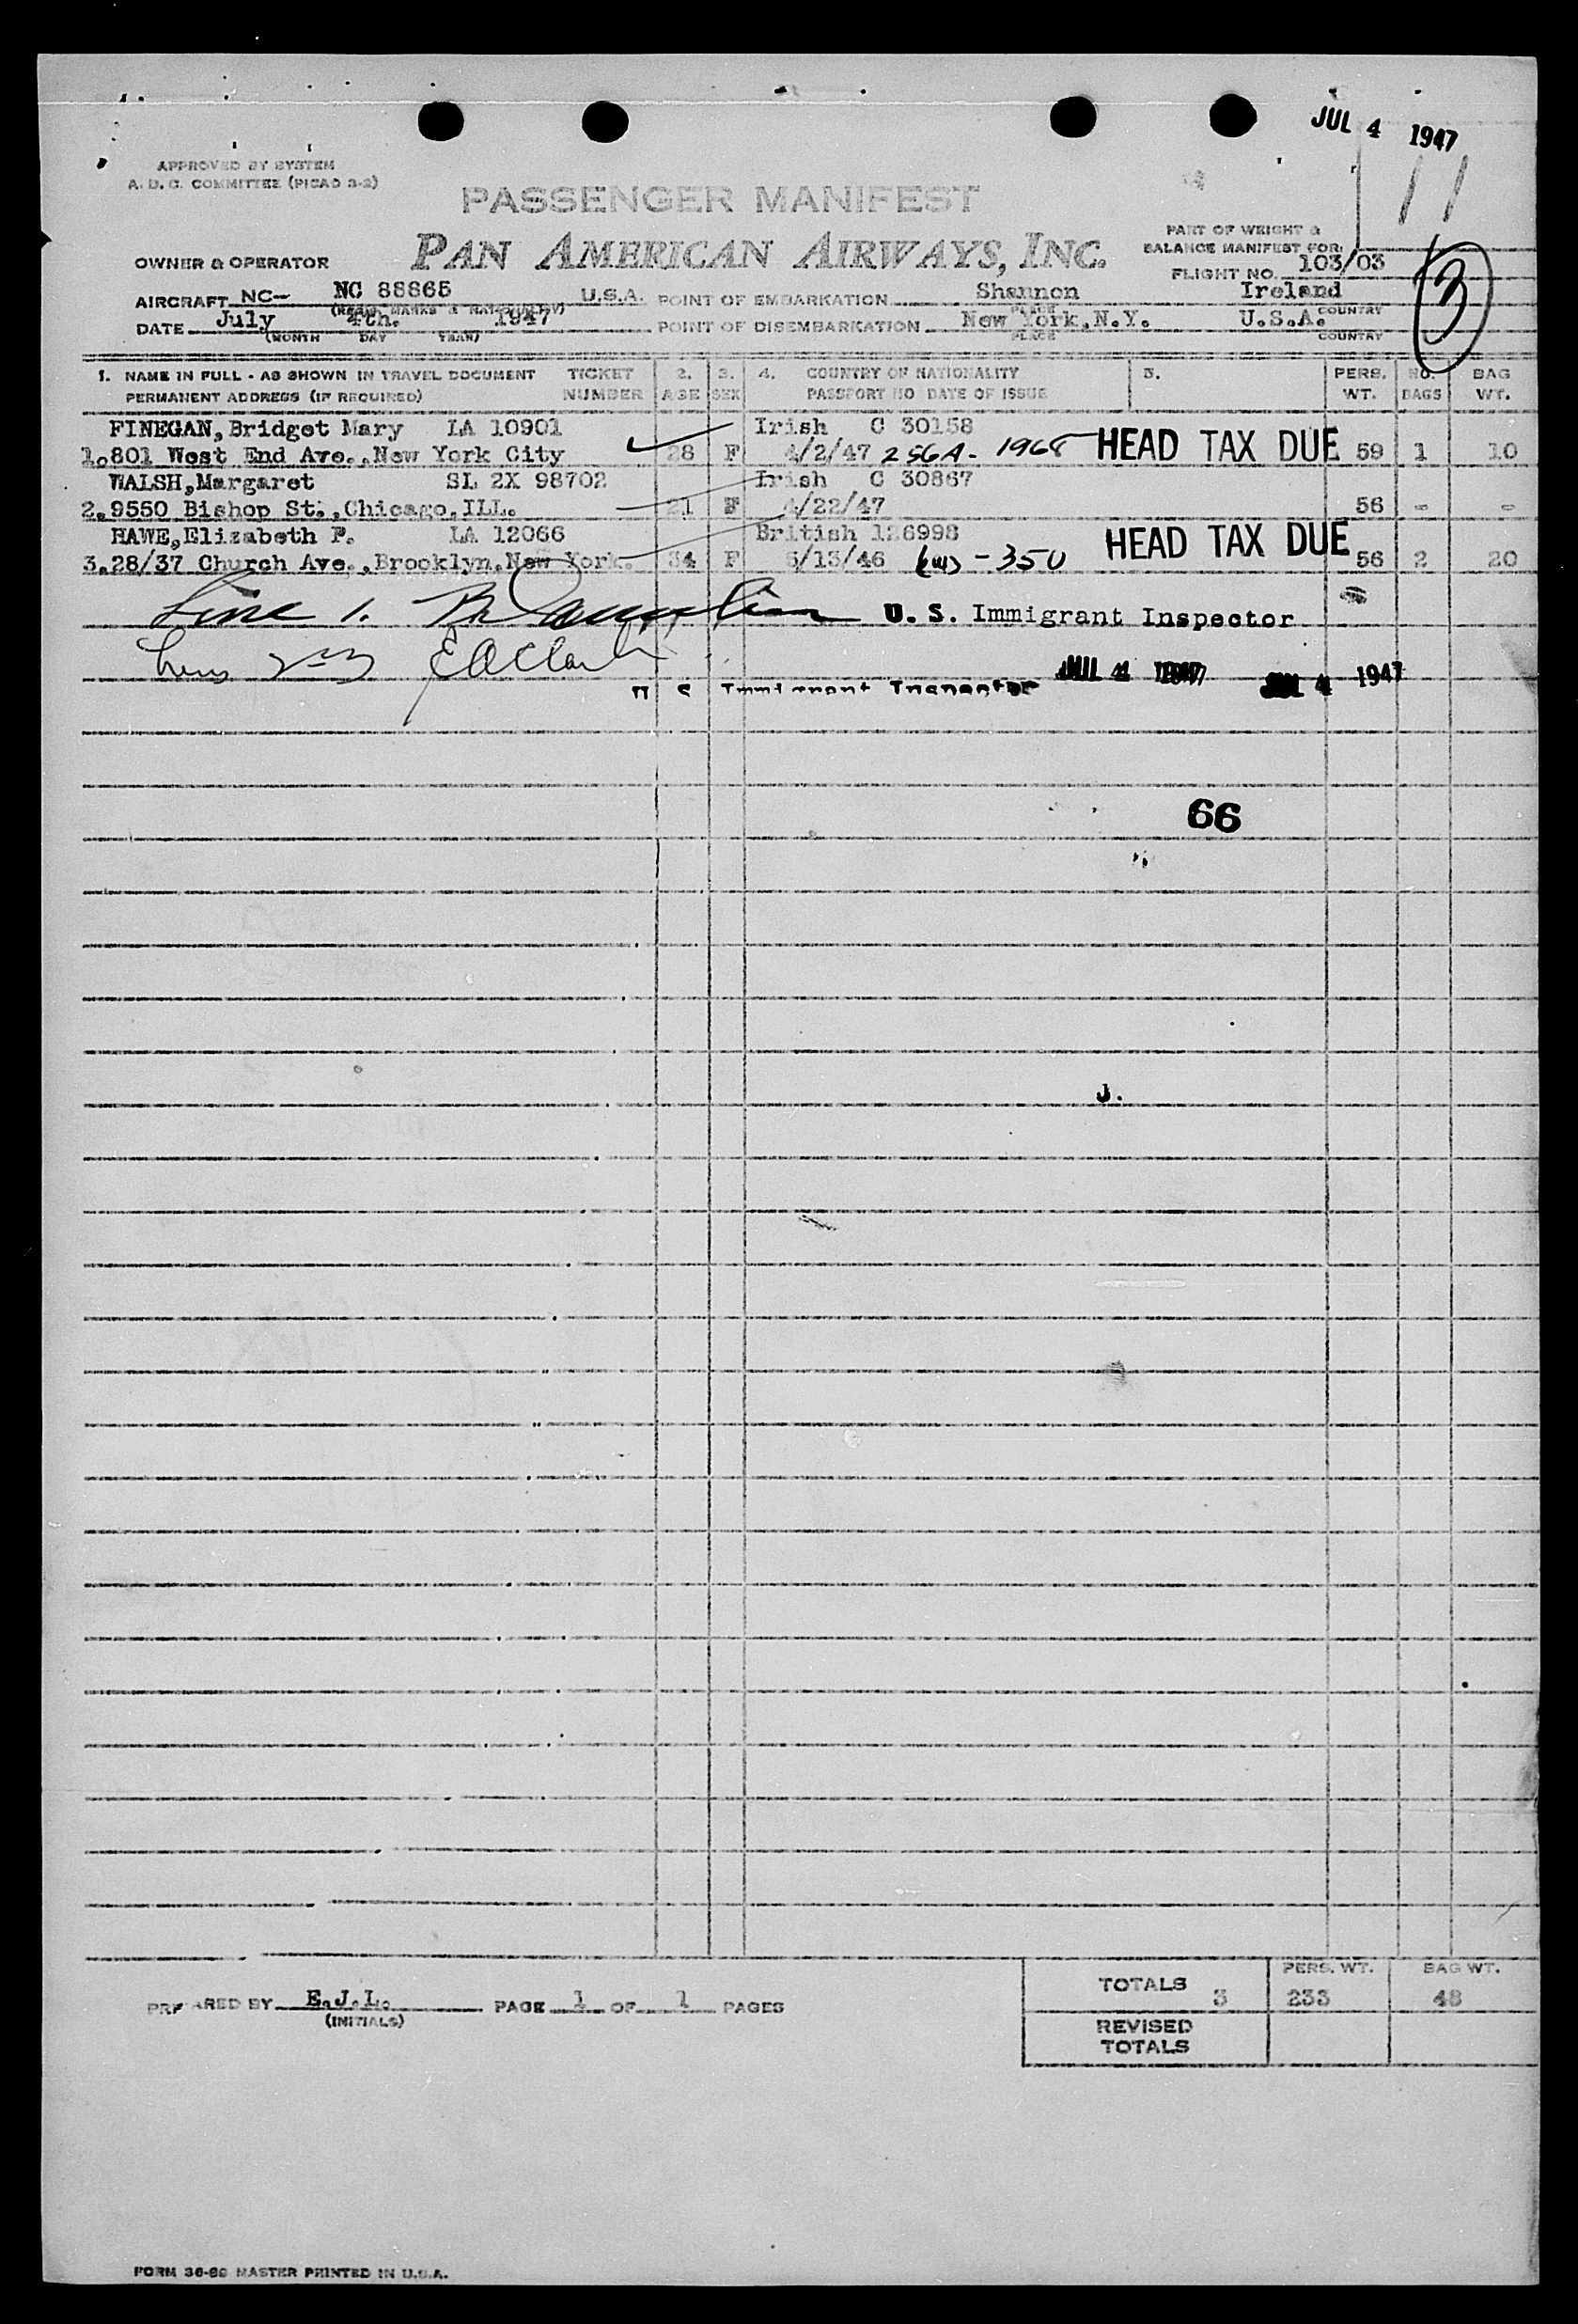 JUL 4 1947
APPROVED BY SYSTEM
A. D. C. COMMITTEE (PICAO 3-2)
PASSENGER MANIFEST
PAN AMERICAN AIRWAYS, INC.
PART OF WEIGHT &
BALANCE MANIFEST FOR:
OWNER & OPERATOR
FLIGHT NO. 103/03
3
AIRCRAFT NC- NC 88865 U.S.A. POINT OF EMBARKATION Shannon Ireland
PLACE COUNTRY
DATE July 4th. 1947 POINT OF DISEMBARKATION New York, N.Y. U.S.A.
(MONTH DAY YEAR) PLACE COUNTRY
1. NAME IN FULL - AS SHOWN IN TRAVEL DOCUMENT TICKET 2. 3. 4. COUNTRY OF NATIONALITY 5. PERS. NO. BAG
PERMANENT ADDRESS (IF REQUIRED) NUMBER AGE SEX PASSPORT NO DATE OF ISSUE WT. BAGS WT.
FINEGAN, Bridget Mary LA 10901 Irish C 30158
1. 801 West End Ave., New York City 28 F 4/2/47 HEAD TAX DUE 59 1 10
WALSH, Margaret SL 2X 98702 Irish C 30867
2. 9550 Bishop St., Chicago, ILL. 21 F 4/22/47 56 - -
HAWE, Elizabeth P. LA 12066 British 126998
3. 28/37 Church Ave., Brooklyn, New York. 34 F 5/13/46 - 350 HEAD TAX DUE 56 2 20
Line 1. U. S. Immigrant Inspector
E A Clark
U S Immigrant Inspector JUL 4 1947 JUL 4 1947
66
J.
TOTALS 3 PERS. WT. 233 BAG WT. 48
PREPARED BY E.J.L. PAGE 1 OF 1 PAGES
(INITIALS)
REVISED
TOTALS
FORM 36-89 MASTER PRINTED IN U.S.A.